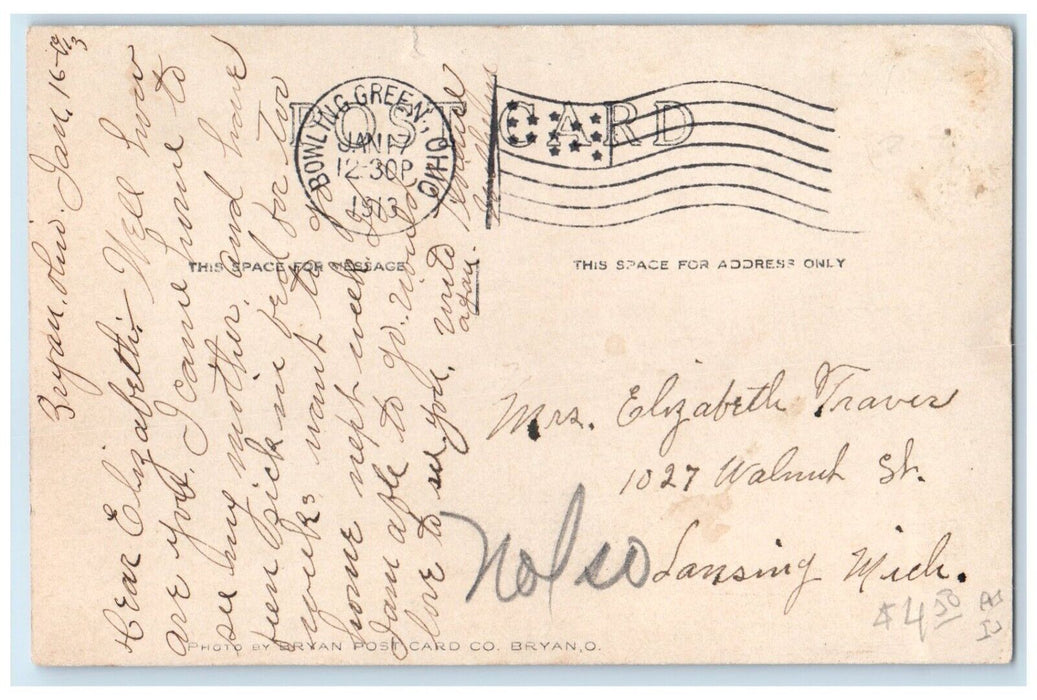 POST CARD
BOWLING GREEN, OHIO
JAN 17
12-30P
1913
THIS SPACE FOR MESSAGE
THIS SPACE FOR ADDRESS ONLY
Bryan, Ohio. Jan, 16-13
Dear Elizabeth:- Well how
are you. I came home to
see my mother, and have
been sick in bed for two
weeks want to go
home next week if
I am able to go. would
love to see you.
again.
Mrs. Elizabeth Traver
1027 Walnut St.
Lansing Mich.
$4.50
PHOTO BY BRYAN POST CARD CO. BRYAN, O.